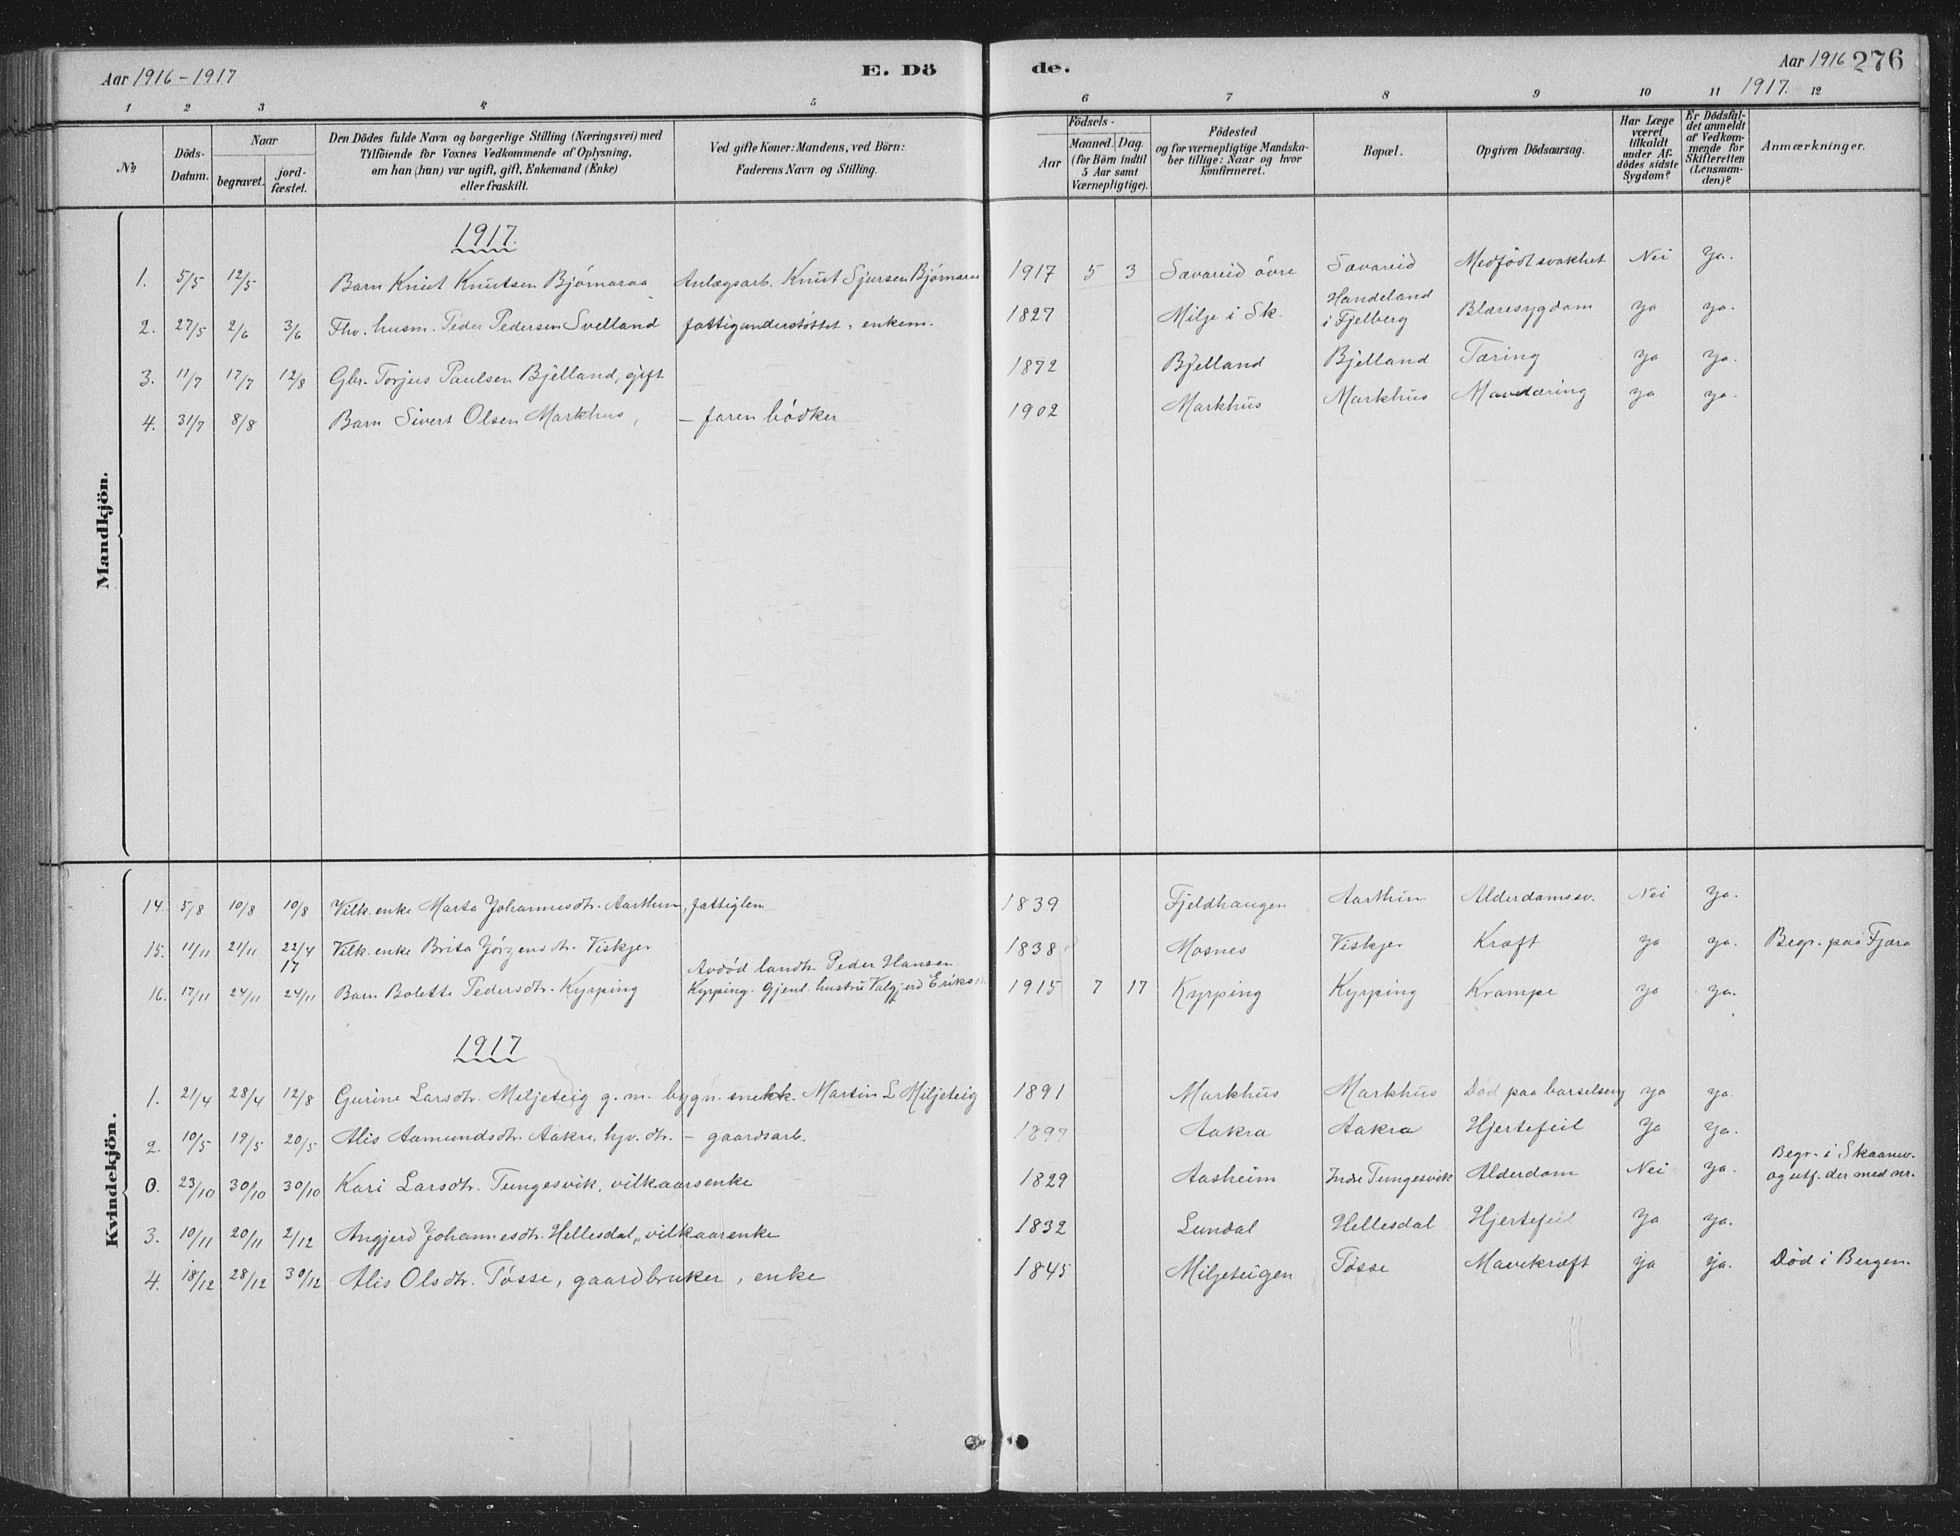 Aar 1916-1917 E. Dö de. Aar 1916 276
1917.
1 2 3 4 5 6 7 8 9 10 11 12
No Döds-Datum. Naar begravet. jord-fæstet. Den Dödes fulde Navn og borgerlige Stilling (Næringsvei) med Tilföiende for Voxnes Vedkommende af Oplysning, om han (hun) var ugift, gift, Enkemand (Enke) eller fraskilt. Ved gifte Koner: Mandens, ved Börn: Faderens Navn og Stilling. Födsels- Aar Maaned. Dag. (for Börn indtil 5 Aar samt Værnepligtige). Födested og for værnepligtige Mandskaber tillige: Naar og hvor konfirmeret. Bopæl. Opgiven Dödsaarsag. Har Læge været tilkaldt under Afdödes sidste Sygdom? Er Dödsfaldet anmeldt af Vedkommende for Skifteretten (Lensmanden)? Anmærkninger.
Mandkjön.
1917.
1. 5/5 12/5 Barn Knut Knutsen Bjørnaraa Anlægsarb. Knut Sjursen Bjørnaraa 1917 5 3 Sævareid øvre Sævareid Medfødt svakhet Nei Ja.
2. 27/5 2/6 3/6 Fhv. husm. Peder Pedersen Svelland fattigunderstøttet, enkem. 1827 Milje i Sk. Handeland i Fjelberg Blæresygdom Ja Ja.
3. 11/7 17/7 12/8 Gbr. Torjus Paulsen Bjelland, gift 1872 Bjelland Bjelland Tæring Ja Ja.
4. 31/7 8/8 Barn Sivert Olsen Markhus, – faren bødker 1902 Markhus Markhus Mavetæring Ja Ja.
Kvindekjön.
14. 5/8 10/8 10/8 Vilk. enke Marta Johannesdtr. Aarthun, fattiglem 1839 Fjeldhaugen Aarthun Alderdomssv. Nei Ja.
15. 11/11 21/11 22/4 17 Vilk. enke Brita Jørgensdtr. Viskjer 1838 Mosnes Viskjer Kræft Ja Ja. Begr. paa Fjæra
16. 17/11 24/11 24/11 Barn Bolette Pedersdtr. Kyrping Avdød landh. Peder Hansen Kyrping. Gjenl. hustru Valgjerd Eriks 1915 7 17 Kyrping Kyrping Krampe Ja Ja.
1917
1. 21/4 28/4 12/8 Gurine Larsdtr. Miljeteig g. m. bygn. snekk. Martin L Miljeteig 1891 Markhus Markhus Død paa barselseng Ja Ja.
2. 10/5 19/5 20/5 Alis Aamundsdtr. Aakre, hjv. dtr. – gaardsarb. 1897 Aakra Aakra Hjertefeil Ja Ja.
0. 23/10 30/10 30/10 Kari Larsdtr. Tungesvik, vilkaarsenke 1829 Aasheim Indre Tungesvik Alderdom Nei Ja. Begr. i Skaanev. og utf. der med nr.
3. 10/11 20/11 2/12 Angjerd Johannesdtr. Hellesdal, vilkaarenke 1832 Lundal Hellesdal Hjertefeil Ja Ja.
4. 18/12 28/12 30/12 Alis Olsdtr. Tøsse, gaardbruker, enke 1845 Miljeteigen Tøsse Mavekræft Ja Ja. Død i Bergen.